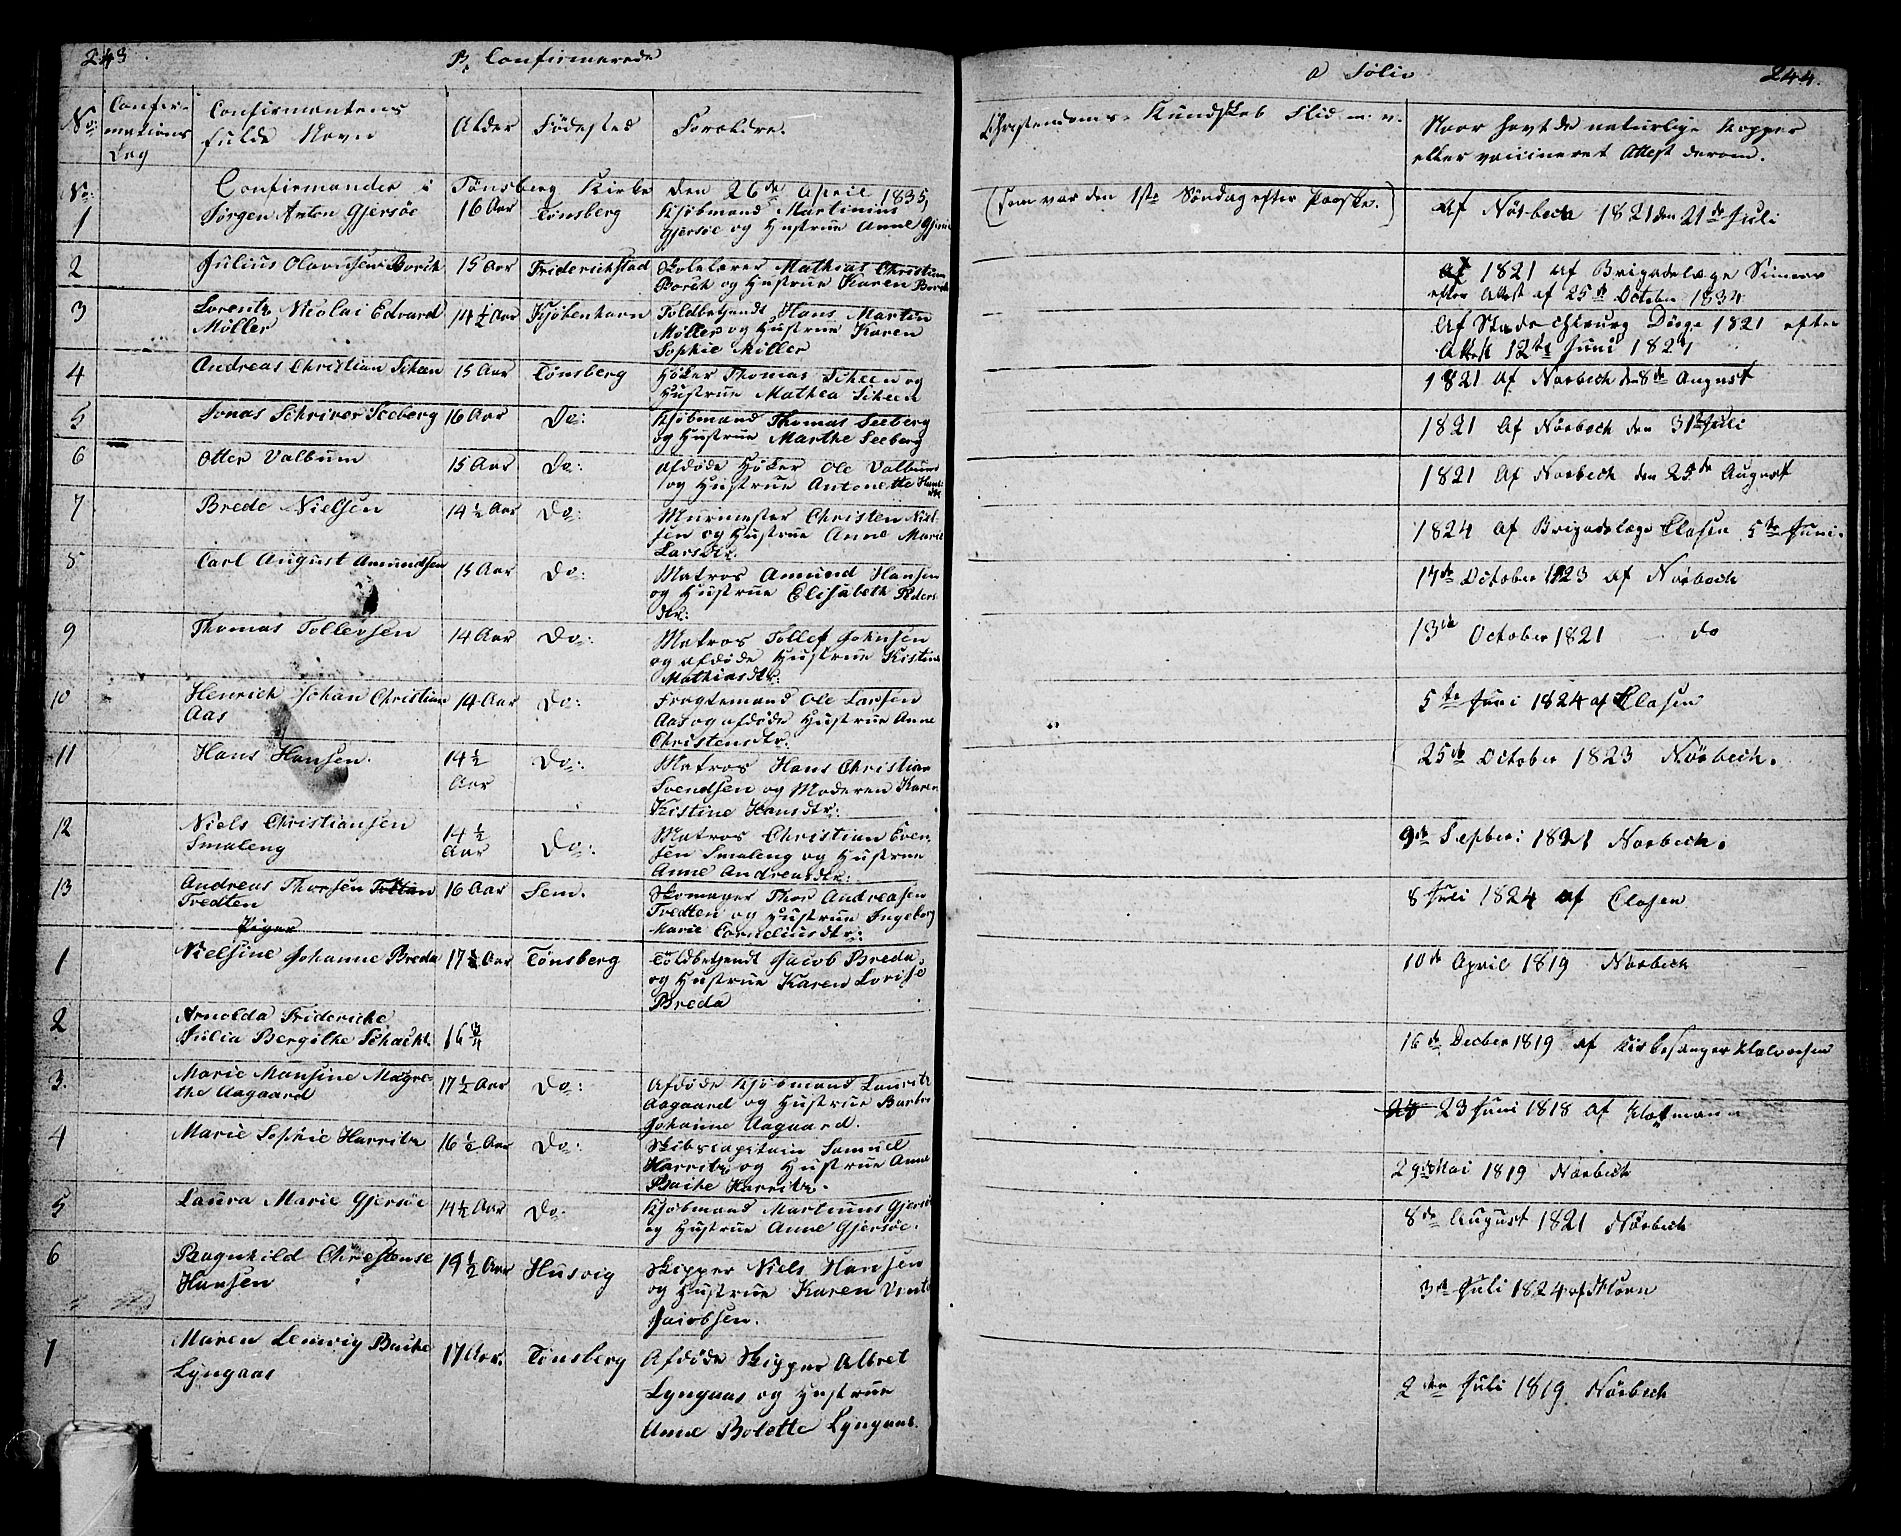 243 B, Confirmerede
No: Confir-
mations
Dag Confirmantens
fulde Navn Alder Fødested Forældre.
No: Confirmander i Tønsberg Kirke den 26de April 1835,
1 Jørgen Anton Gjersøe 16 Aar Tønsberg Kjøbmand Martinius
Gjersøe og Hustrue Anne Gjersøe
2 Julius Olavusen Borch 15 Aar Friderichstad Skolelærer Mathias Christian
Borch og Hustrue Karen Borch
3 Lorentz Nicolai Edvard
Møller 14 ½ Aar Kjøbenhavn Toldbetjendt Hans Martin
Møller og Hustrue Karen
Sophie Møller
4 Andreas Christian Scheen 15 Aar Tønsberg Høker Thomas Scheen og
Hustrue Mathea Scheen
5 Jonas Schriver Seeberg 16 Aar Do: Kjøbmand Thomas Seeberg
og Hustrue Marthe Seeberg
6 Otter Valbum 15 Aar Do: Afdøde Høker Ole Valbum
og Hustrue Antonette
7 Brede Nielsen 14 ½ Aar Do: Murmester Christen Niel-
sen og Hustrue Anne Marie
Larsdtr:
8 Carl August Amundsen 15 Aar Do: Matros Amund Hansen
og Hustrue Elisabeth Peders
dtr:
9 Thomas Tollevsen 14 Aar Do: Matros Tollef Johnsen
og afdøde Hustrue Kistine
Mathiasdtr:
10 Henrich Johan Christian
Aas 14 Aar Do: Fragtemand Ole Larsen
Aas og afdøde Hustrue Anne
Christensdtr:
11 Hans Hansen. 14 ½
Aar Do: Matros Hans Christian
Svendsen og Moderen Karen
Kistine Hansdtr:
12 Niels Christiansen
Smaleng 14 ½
Aar Do: Matros Christian Even-
sen Smaleng og Hustrue
Anne Andreasdtr:
13 Andreas Thorsen
Tredten 16 Aar Sem. Skomager Thor Andreasen
Tredten og Hustrue Ingeborg
Marie Corneliusdtr:
Piger
1 Nielsine Johanne Breda 17 ½ Aar Tønsberg Toldbetjendt Jacob Breda
og Hustrue Karen Lovise
Breda
2 Arnolda Friderike
Julia Bergithe Schacht 16 ¾
3. Marie Mansine Magre-
the Aagaard 17 ½ Aar Do: Afdøde Kjøbmand Lauritz
Aagaard og Hustrue Barbra
Johanne Aagaard.
4 Marie Sophie Harritz 16 ½ Aar Do: Skibscapitain Samuel
Harritz og Hustrue Anne
Bache Harritz.
5 Laura Marie Gjersøe 14 ½ Aar Do: Kjøbmand Martinus Gjersø
og Hustrue Anne Gjersøe.
6 Ragnhild Christense
Hansen 19 ½ Aar Husvig Skipper Niels Hansen
og Hustrue Karen
Jacobsen.
7 Maren Lemvig Bache
Lyngaas 17 Aar. Tønsberg Afdøde Skipper Albret
Lyngaas og Hustrue
Anne Bolette Lyngaas.
a Folio 244.
Christendoms-Kundskab Flid m: v. Naar havt de naturlige Kopper
eller vaccineret Attest derom.
(som var den 1ste Søndag efter Paaske.) Af Nørbech 1821 den 21de Juli
1821 af Brigadelæge
efter Attest af 25de October 1834
Af Stadschirurg Dörge 1821 efter
Attest 12te Juni 1821
1821 af Nørbech den 8de August
1821 af Nørbech den 31te Juli
1821 af Nørbech den 25de August
1824 af Brigadelæge Clasen 5te Juni.
17de October 1823 af Nørbech
13de October 1821 do
5te Juni 1824 af Clasen
25de October 1823 Nørbech.
9de Septber: 1821 Nørbech.
8 Juli 1824 af Clasen
10de April 1819 Nørbech
16de Decber 1819 af Kirkesanger Halvorsen
23 Juni 1818 af
29de Mai 1819 Nørbech
8de August 1821 Nørbech
3de Juli 1824 af
2den Juli 1819 Nørbech